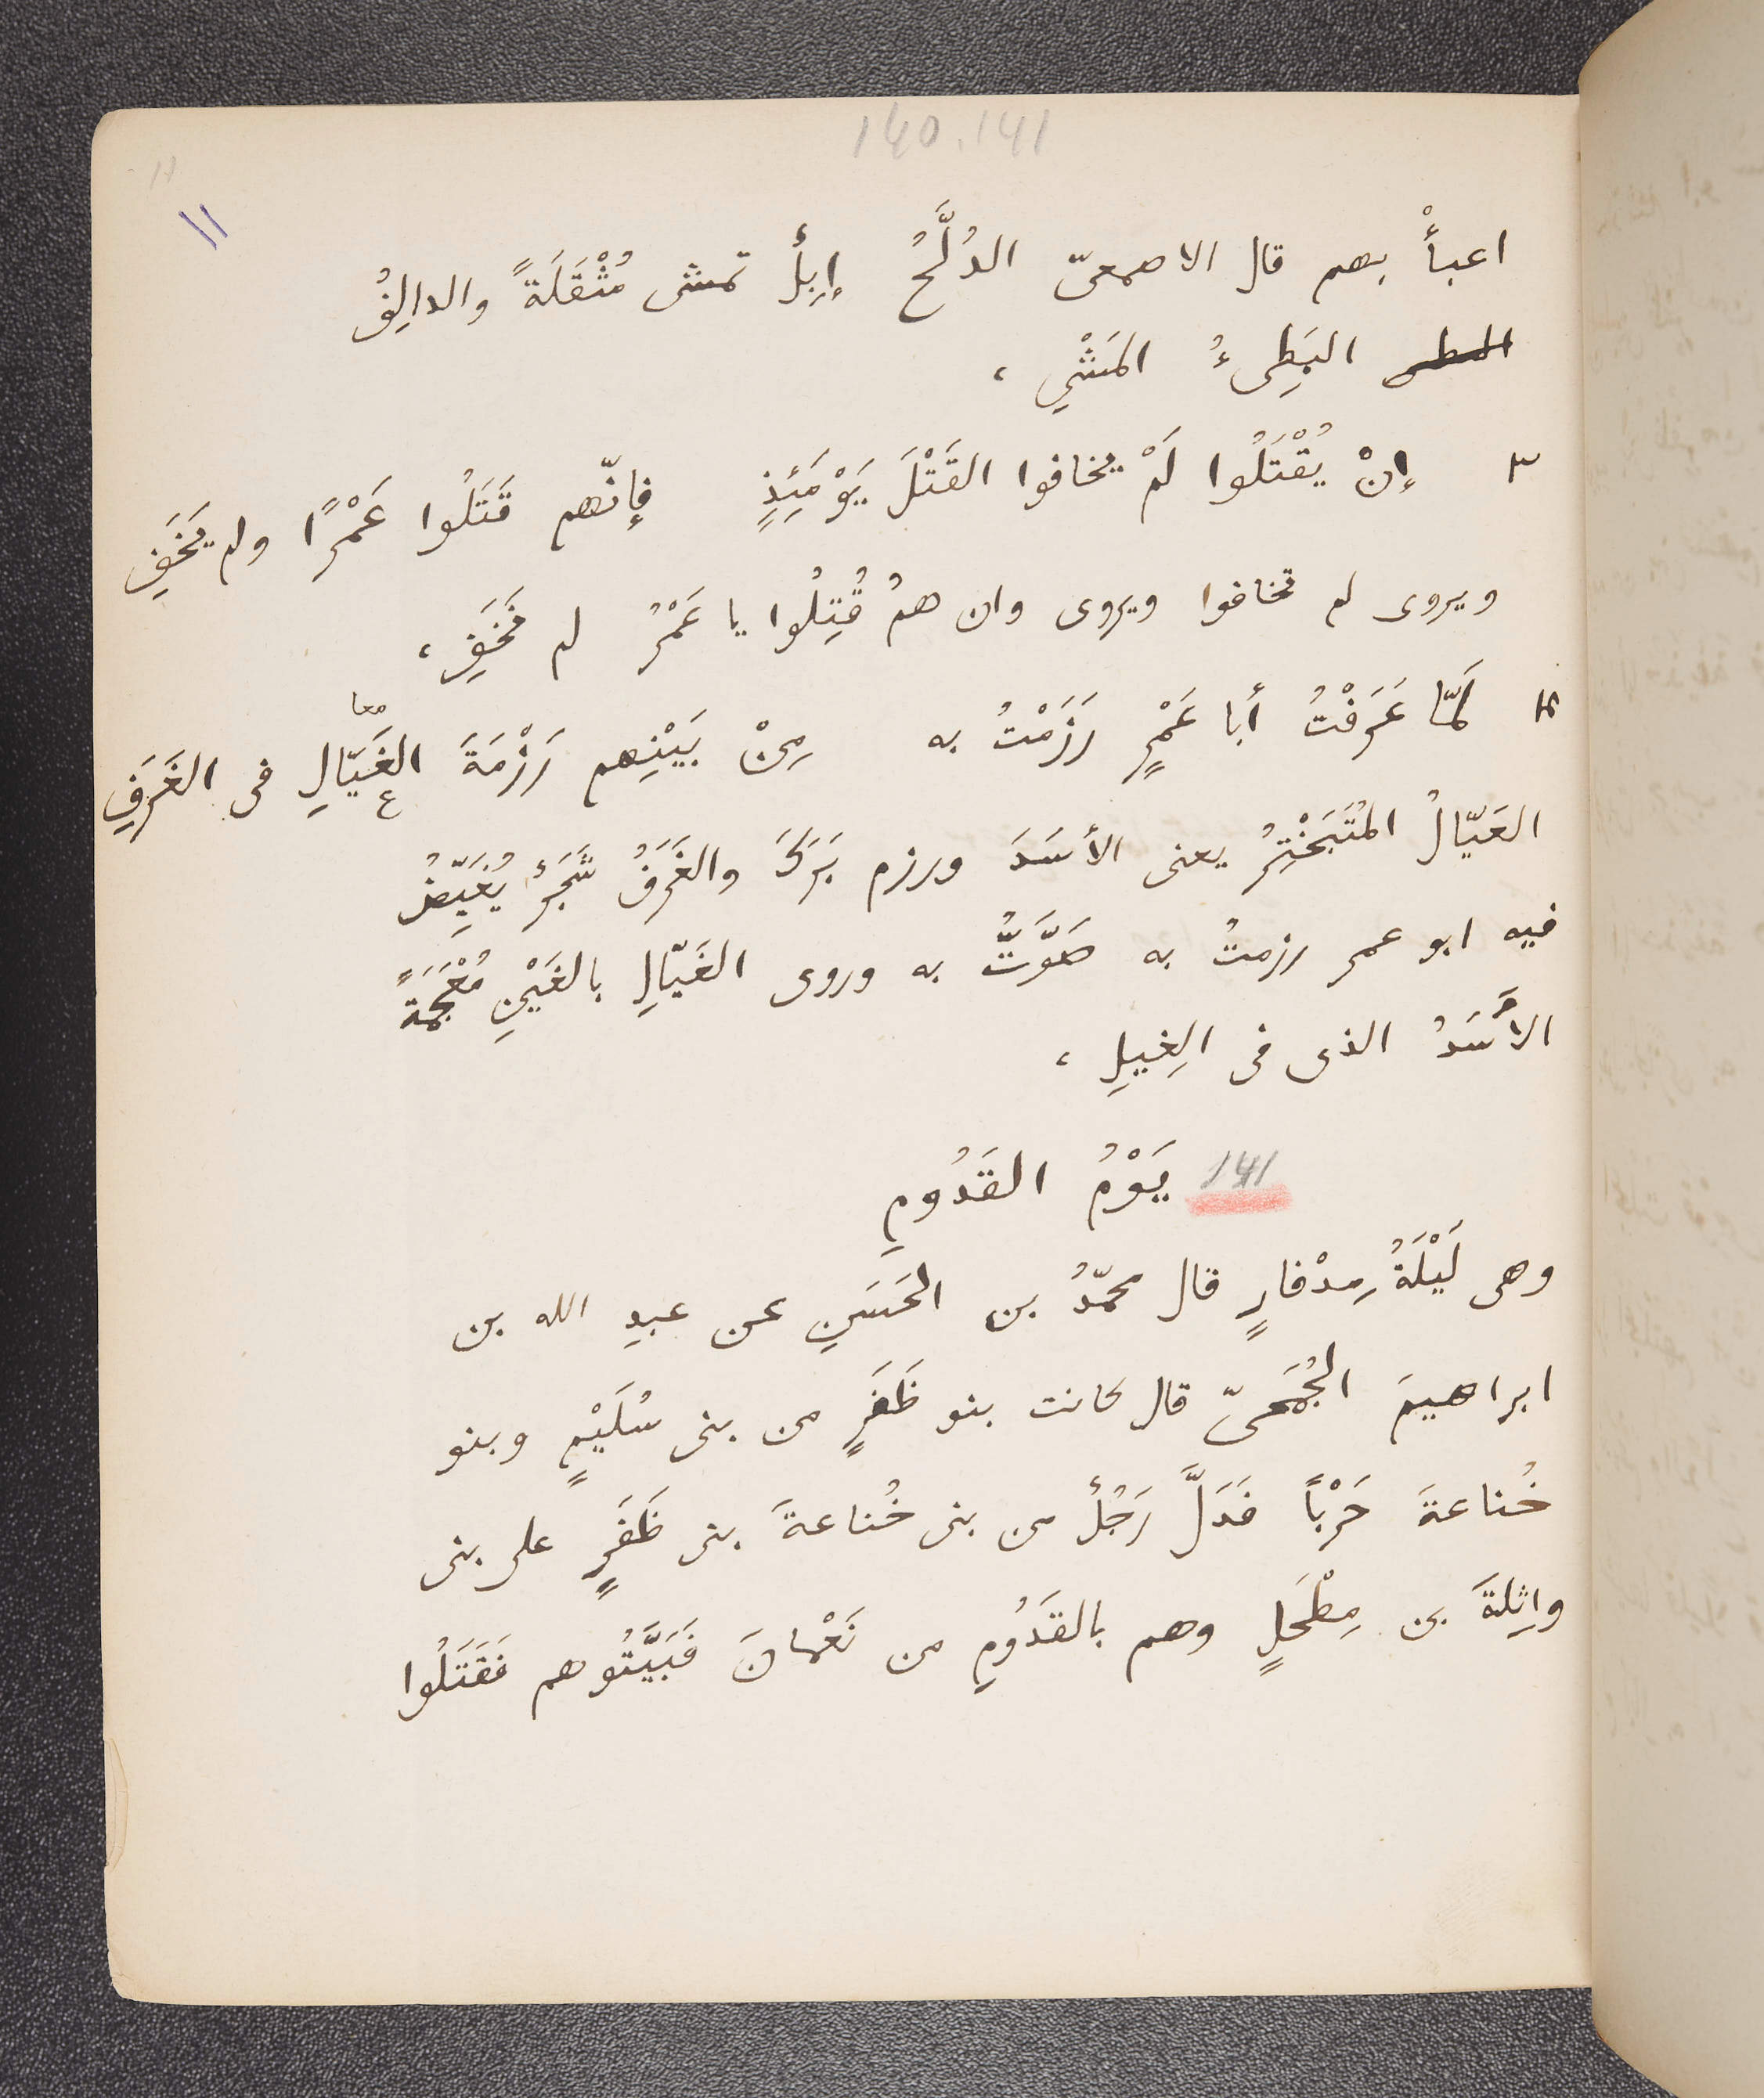 140.141
11
11
اعبأْ بهم قال الاصمعىّ الدُلَّحُ إبِلٌ تمشى مُثْقَلَةً والدالِفُ
المطى البَطِىءُ المَشْيِ ،
٣ إنْ يُقْتَلُوا لَمْ يخافوا القَتْلَ يَوْمَئِذٍ فإنّهم قَتَلُوا عَمْرًا ولم يَخَفِ
ويروى لم تخافوا ويروى وان همُ قُتِلُوا يا عَمْرُ لم نَخَفِ ،
معا
٤ لمّا عَرَفْتُ أبا عَمْرٍ رَزَمْتُ به مِنْ بَيْنِهم رَزْمَةَ الغَيّالِ فى الغَرَفِ
ع
العَيّالُ المُتَبَخْتِرُ يعنى الأسَدَ ورزم بَرَكَ والغَرَفُ شَجَرٌ يُغَيِّضُ
فيه ابو عمر رزمتُ به صَوَّتُّ به وروى الغَيّالِ بالغَيْنِ مُعْجَمَةً
الأَسَدُ الذى فى الِغيلِ ،
141 يَوْمُ القَدُومِ
وهى لَيْلَةُ مِدْفارٍ قال محمّدُ بن الحَسَنِ عن عبدِ الله بن
ابراهيمَ الجُمَحىّ قال كانت بنو ظَفَرٍ من بنى سُلَيْمٍ وبنو
خُناعةَ حَرْباً فَدَلَّ رَجُلٌ من بنى خُناعةَ بنى ظَفَرٍ على بنى
واثِلةَ بن مِطْحَلٍ وهم بالقَدُومِ من نَعْمانَ فَبَيَّتُوهم فَقَتَلُوا